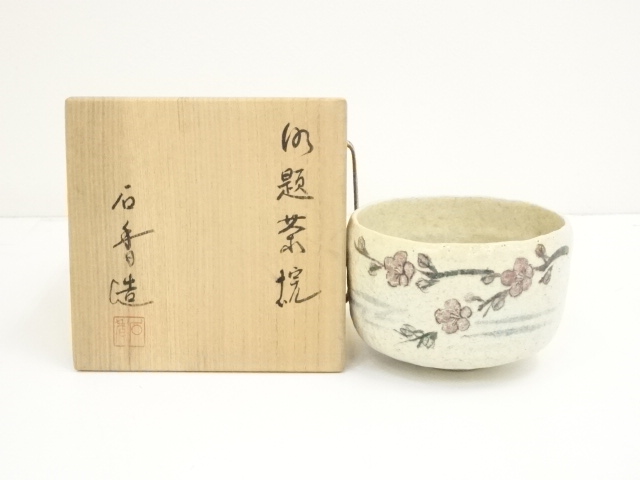 御題茶碗
石香造